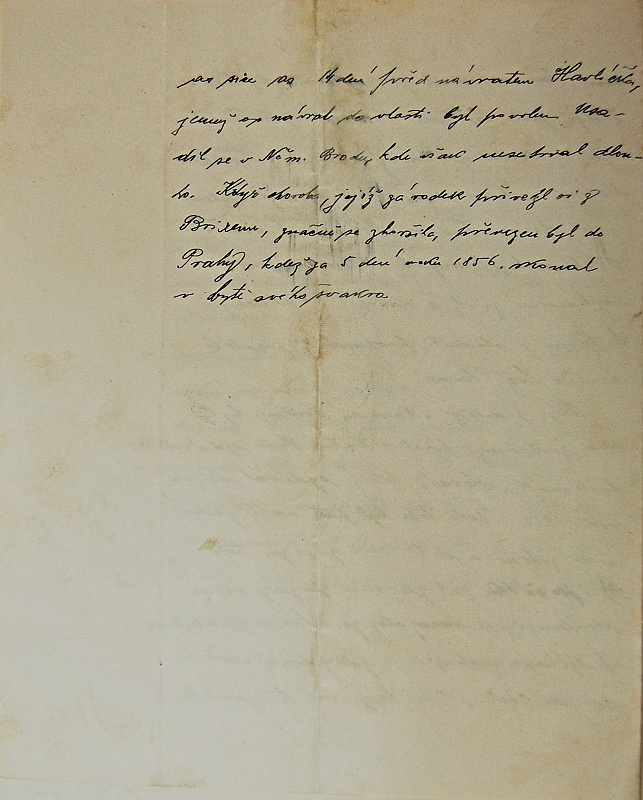 a sice as 14 dní před návratem Havlíčka,
jemuž návrat do vlasti byl povolen. Usa-
dil se v Něm. Brodu, kde však nesetrval dlou-
ho. Když choroba, jejíž zárodek přivezl si z
Brixenu, značně se zhoršila, převezen byl do
Prahy, kdež za 5 dní roku 1856. skonal
v bytě svého švakra